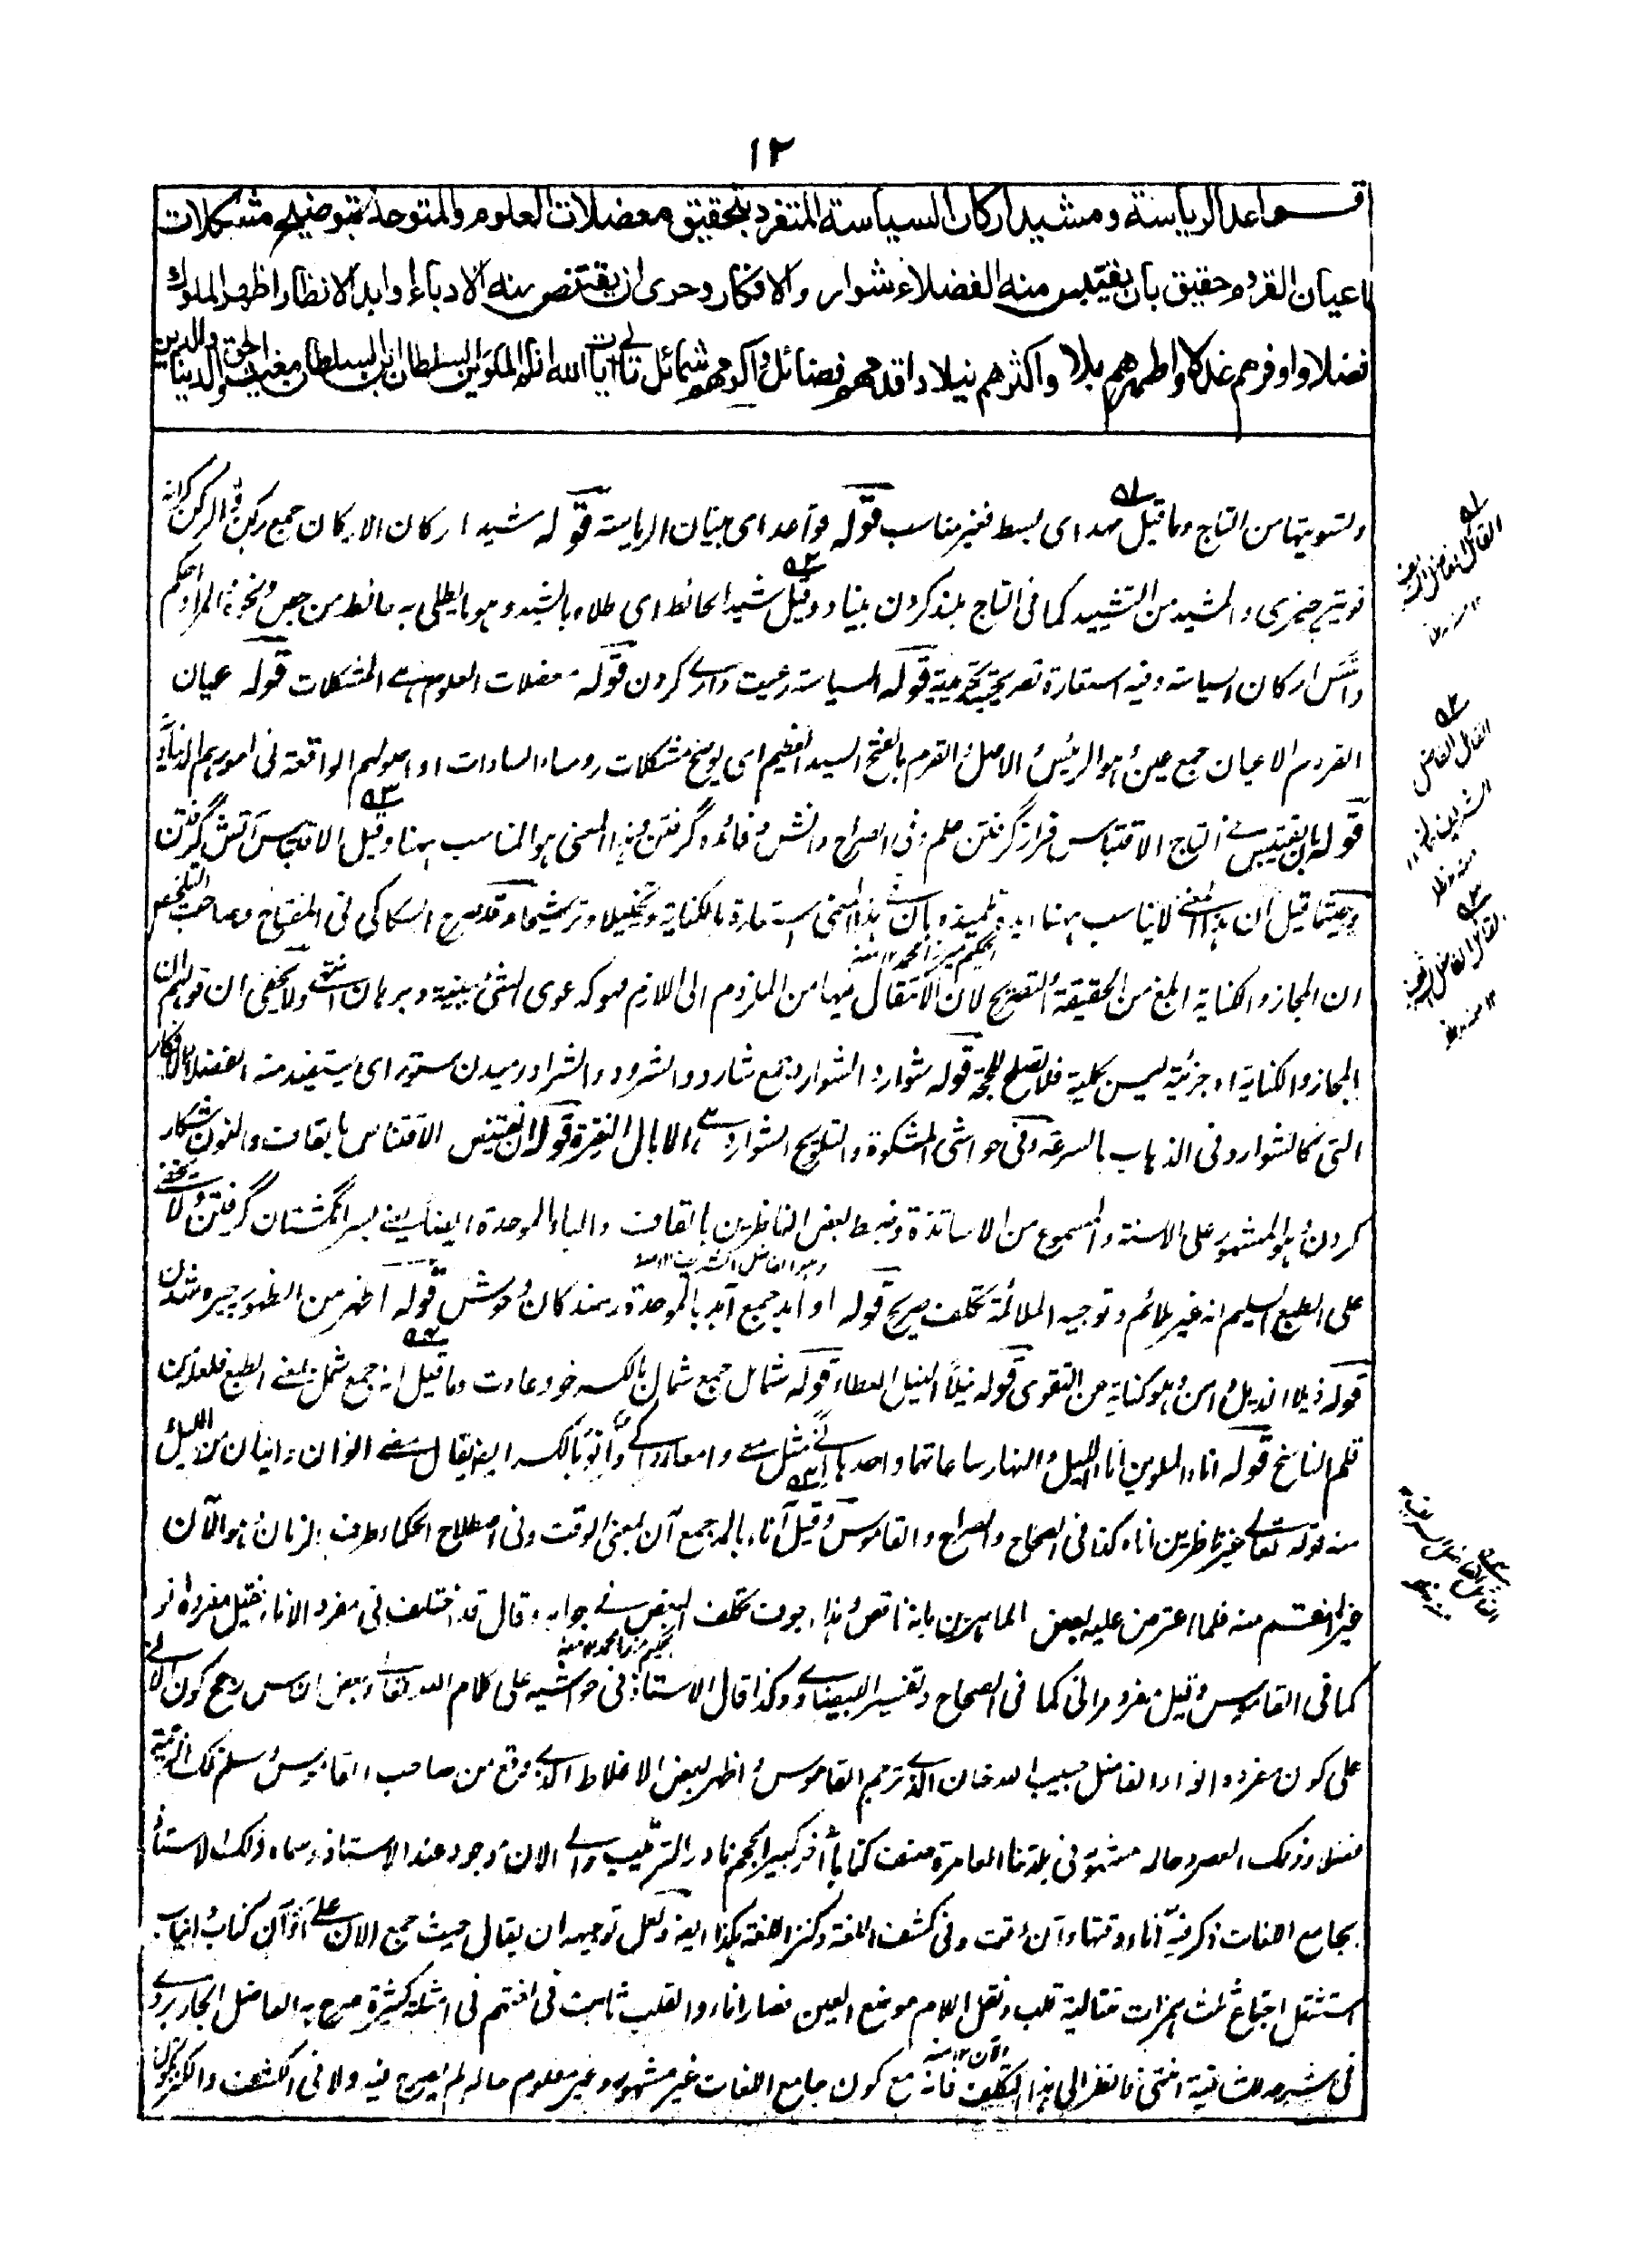 ١٢
قواعد الرياسة ومشيد اركان السياسة المتفرد بتحقيق معضلات العلوم والمتوحد بتوضيح مشكلات
اعيان القروم حقيق بان يقتبس منه الفضلاء شوارد الافكار وحرى ان يقتنص منه الادباء اوابد الانظار اظهر الملوك
فضلا واوفرهم عدلا واطهرهم ذيلا واكثرهم نيلا واقدمهم فضائل واكرمهم شمائل تالى آيات الله اناء الملوين السلطان ابن السلطان مغيث الحق والدنيا والدين
وتسويتها من التاج وما قيل مهد اى بسط فغير مناسب قوله قواعد اى بنيان الرياسة قوله مشيد اركان الاركان جمع ركن والركن كرانه
قويتر چيزى والمشيد من التشييد كما فى التاج بلند كردن بنياد وقيل شيد الحائط اى طلاه بالشيد وهو ما يطلى به حائط من جص ونحوه المراد محكم
واسس اركان السياسة وفيه استعارة تصريحية قوله السياسة رعيت دارى كردن قوله معضلات العلوم اى المشكلات قوله عيان
القروم الاعيان جمع عين هو الرئيس الاصل والقرم بالفتح السيد العظيم اى يوضح مشكلات روساء السادات او اصولهم الواقعة فى امورهم
قوله بان يقتبس فى التاج الاقتباس فراز گرفتن علم وفى الصراح دانش وفائده گرفتن وهذا المعنى هو المناسب ههنا وقيل الاقتباس آتش گرفتن
وحينئذ قيل ان هذا المعنى لا يناسب ههنا تلميذه بان فى هذا المعنى استعارة بالكناية وتخييلا وترشيحا وقد صرح السكاكى فى المفتاح وصاحب التلخيص
الحكيم ميرزا محمد ١٢ منه
ان المجاز والكناية ابلغ من الحقيقة والتصريح لان الانتقال فيها من الملزوم الى اللازم فهو كدعوى الشئ ببينة وبرهان انتهى ولا يخفى ان قولهم ان
المجاز والكناية اه جزئية ليس كلية فلا تصلح للحجة قوله شوارد الشوارد جمع شارد والشرود والشراد رميدن ستور اى يستفيد منه الفضلاء الافكار
التى كالشوارد فى الذهاب بالسرعة وفى حواشى المشكوة والتلويح الشوارد هى الابال النفرة قوله ان يقتنص الاقتناص بالقاف والنون شكار
كردن هو المشهور على الالسنة والمسموع من الاساتذة وضبط بعض الناظرين بالقاف والباء الموحدة ايضا يعنى بسر انگشتان گرفتن ولا يخفى
وهو الفاضل الشريف ١٢ منه
على الطبع السليم انه غير ملائم وتوجيه الملائمة تكلف صريح قوله اوابد جمع آبد بالموحدة رمندگان وحوش قوله اظهر من الظهور چيره شدن
قوله ذيلا الذيل دامن وهو كناية عن التقوى قوله نيلا النيل العطاء قوله شمائل جمع شمال بالكسر خو وعادت وما قيل انه جمع شمل بمعنى الطبع فلعله من
قلم الناسخ قوله اناء الملوين اناء الليل والنهار ساعاتهما واحدها انى مثل معى وامعاء وانو بالكسر ايضا يقال مضى انوان وانيان من الليل
منه قوله تعالى غير ناظرين اناه كذا فى الصحاح والصراح والقاموس وقيل آناء بالمد جمع آن بمعنى الوقت وفى اصطلاح الحكماء طرف الزمان هو الآن
غير المنقسم منه فلما اعترض عليه بعض الماهرين بانه ناقص وهذا اجوف تكلف البعض فى جوابه وقال قد اختلف فى مفرد الاناء فقيل مفرده انو
حكيم ميرزا محمد ١٢ منه
كما فى القاموس وقيل مفرده انى كما فى الصحاح وتفسير البيضاوى وكذا قال الاستاذ فى حواشيه على كلام الله تعالى وبعض الناس رجح كون الانى
على كون مفرده انو اذ الفاضل حبيب الله خان الذى ترجم القاموس اظهر بعض الاغلاط الذى وقع من صاحب القاموس
فضلاء ذلك العصر وحاله مشهور فى بلدتنا العامرة صنف كتابا آخر كبير الحجم نادر الترتيب والى الان موجود عند الاستاذ وسماه ذلك الاستاذ
بجامع اللغات ذكر فيه اناء وقتها وآن وقت وفى كشف اللغة وكنز اللغة هكذا ايضا ولعل توجيهه ان يقال حيث جمع الان على أأن
استثقل اجتماع ثلث همزات متتالية قلب ونقل اللام موضع العين فصار اناء والقلب ثابت فى لغتهم فى امثلة كثيرة صرح به الفاضل الجاربردى
الان ١٢ منه
فى شرحه للشافية انتهى فانظر الى هذا التكلف فانه مع كون جامع اللغات غير مشهور وغير معلوم حاله لم يصرح فيه ولا فى الكشف والكنز بكون
القائل الفاضل الشريف
القائل الفاضل
القائل الفاضل الشريف
القائل الفاضل الشريف